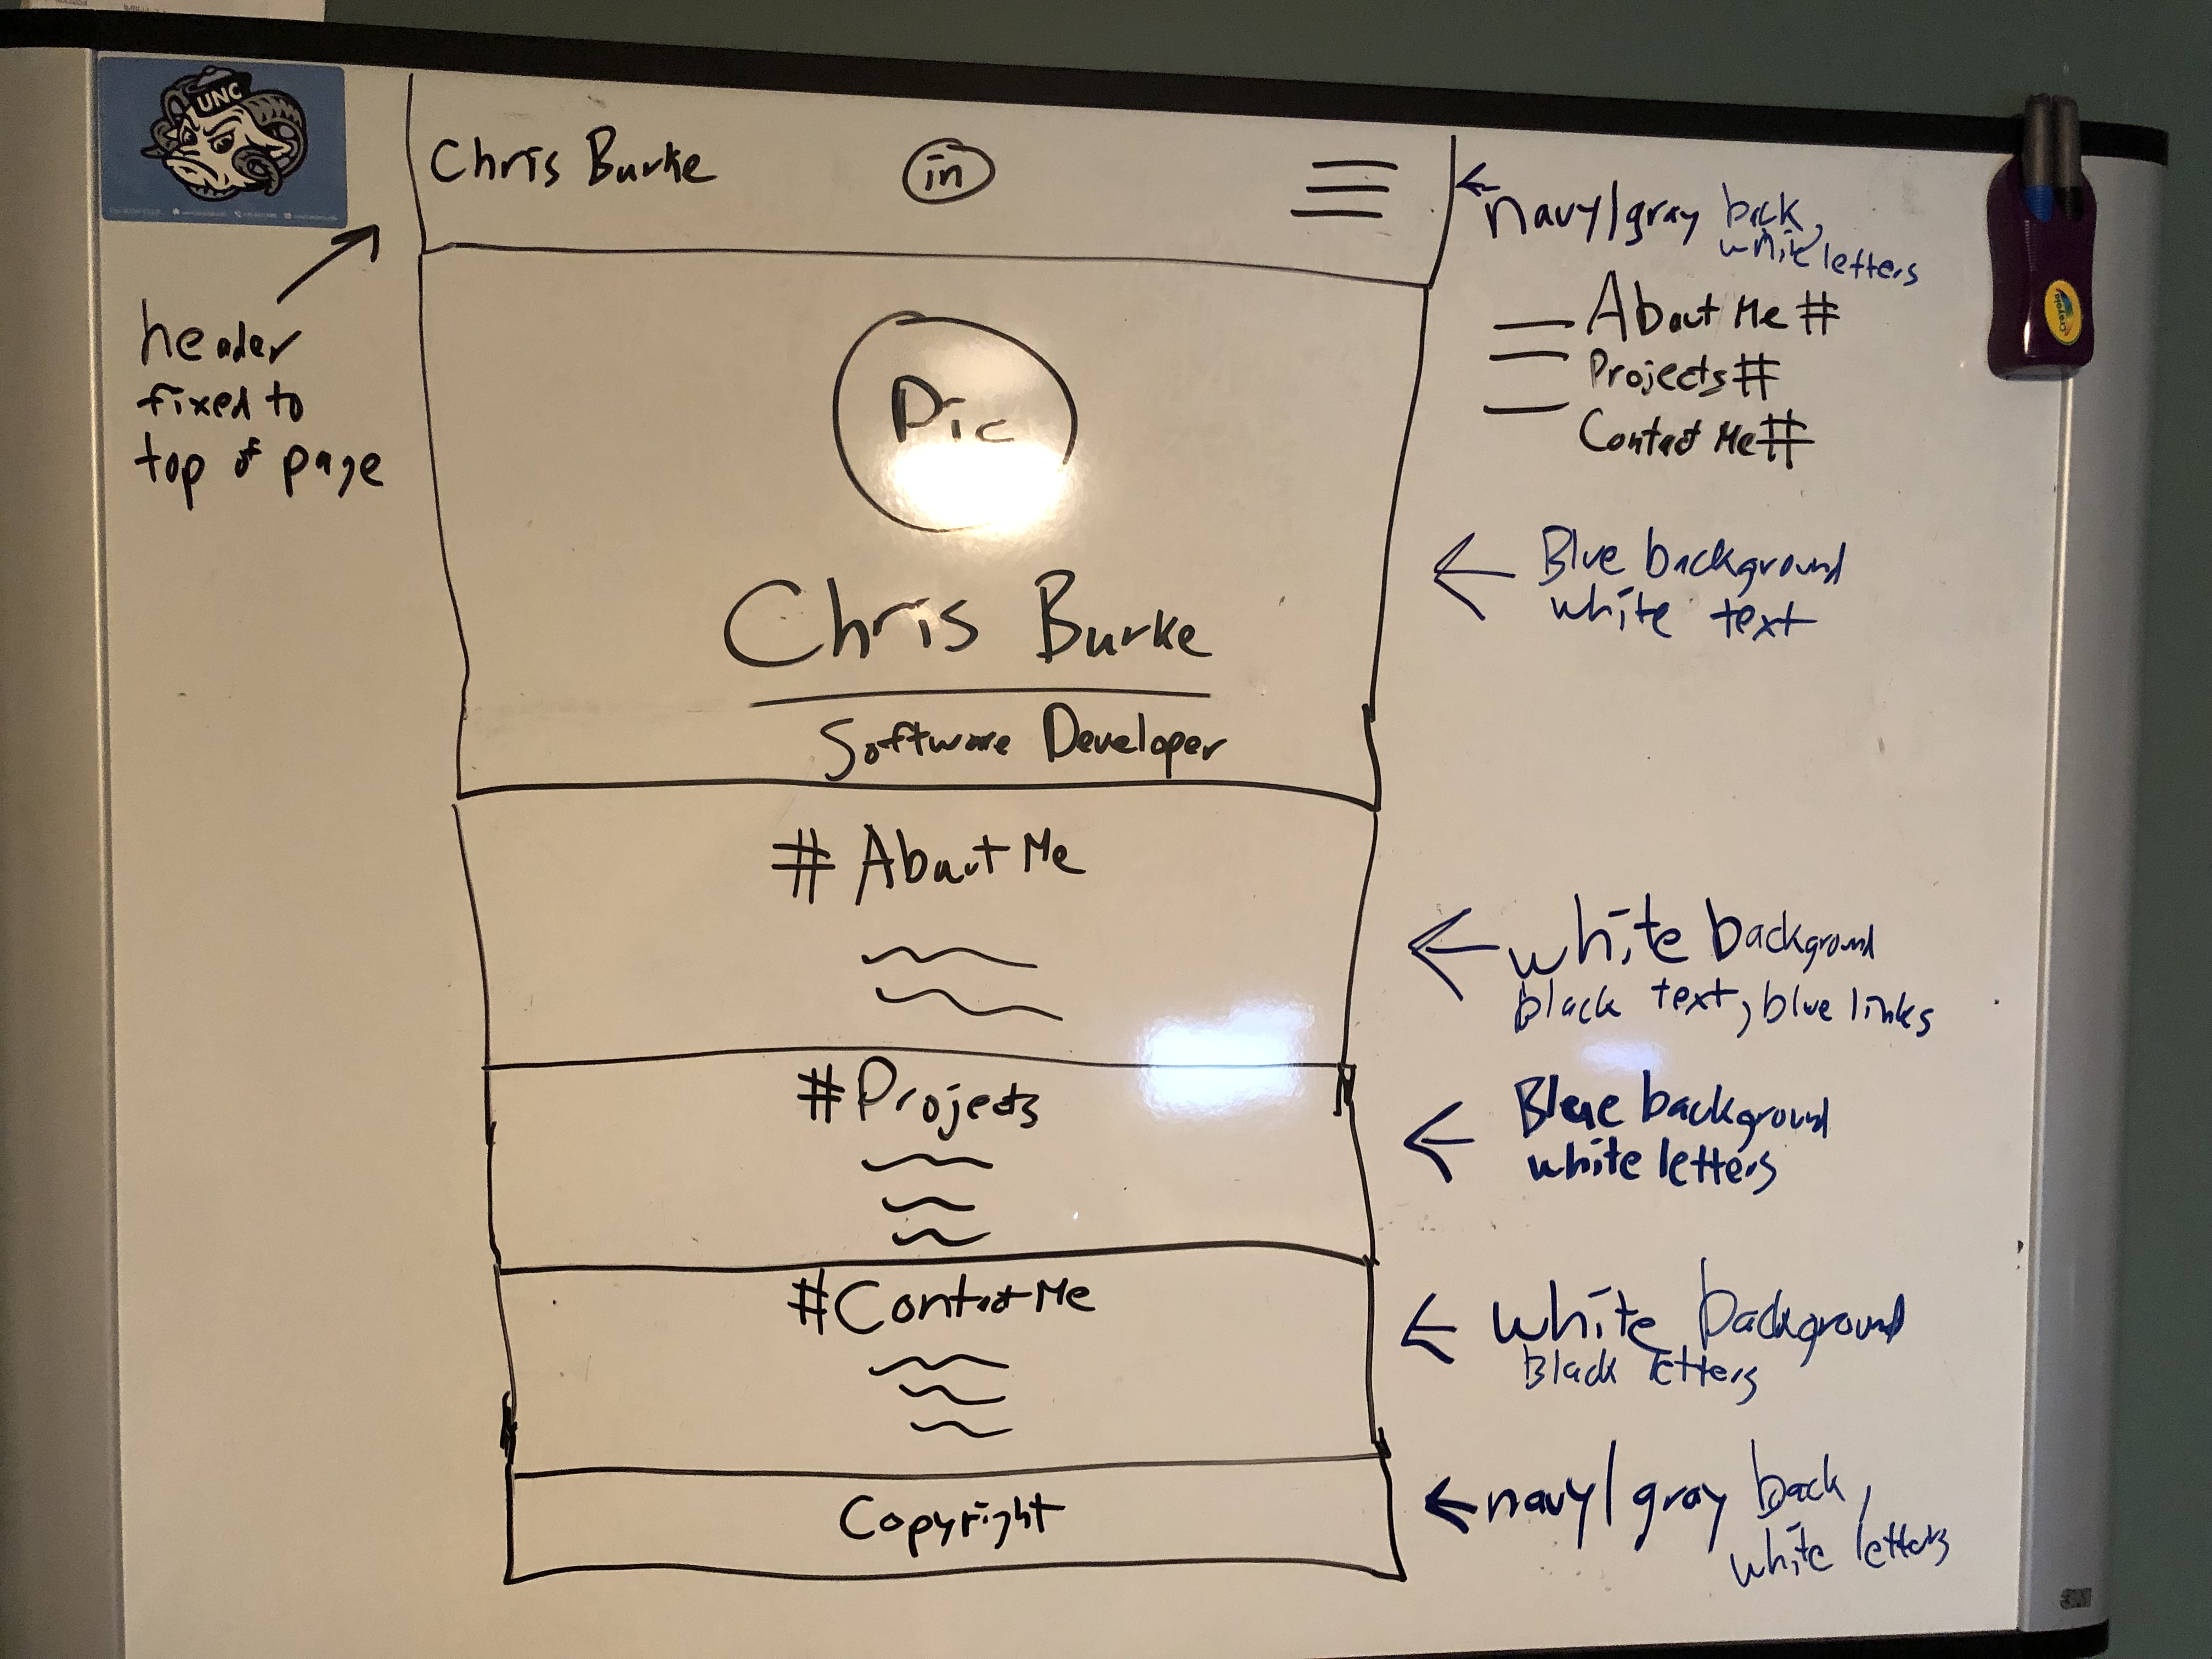 UNC
Chris Burke
in
navy/gray back,
white letters
header
fixed to
top of page
About Me #
Projects #
Contact Me #
Pic
Chris Burke
Software Developer
Blue background
white text
# About Me
white background
black text, blue links
# Projects
Blue background
white letters
# Contact Me
white background
Black letters
Copyright
navy/gray back,
white letters
Crayola
3M